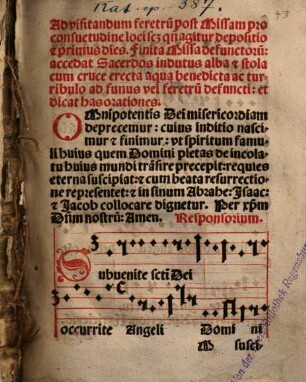 Rat. ep. 387.
43
Ad visitandum feretrū post Missam pro
consuetudine loci: seqn̄ agitur depositio
e primus dies. Finita Missa defunctorū:
accedat Sacerdos indutus alba e stola
cum cruce erecta aqua benedicta ac tur
ribulo ad funus vel feretrū defuncti: et
dicat has orationes.
OMnipotentis Dei misericordiam
deprecemur: cuius inditio nasci
mur e finimur: vt spiritum famu
li huius quem Domini pietas de incola
tu huius mundi trāsire precepit: requies
eterna suscipiat: e cum beata resurrectio
ne representet: e in sinum Abrahe: Isaac:
e Jacob collocare dignetur. Per xp̄m
Dn̄m nostrū: Amen. Responsorium.
Subuenite scti Dei
occurrite Angeli Domi ni
Susci
Von der Bibliothek Regensburg